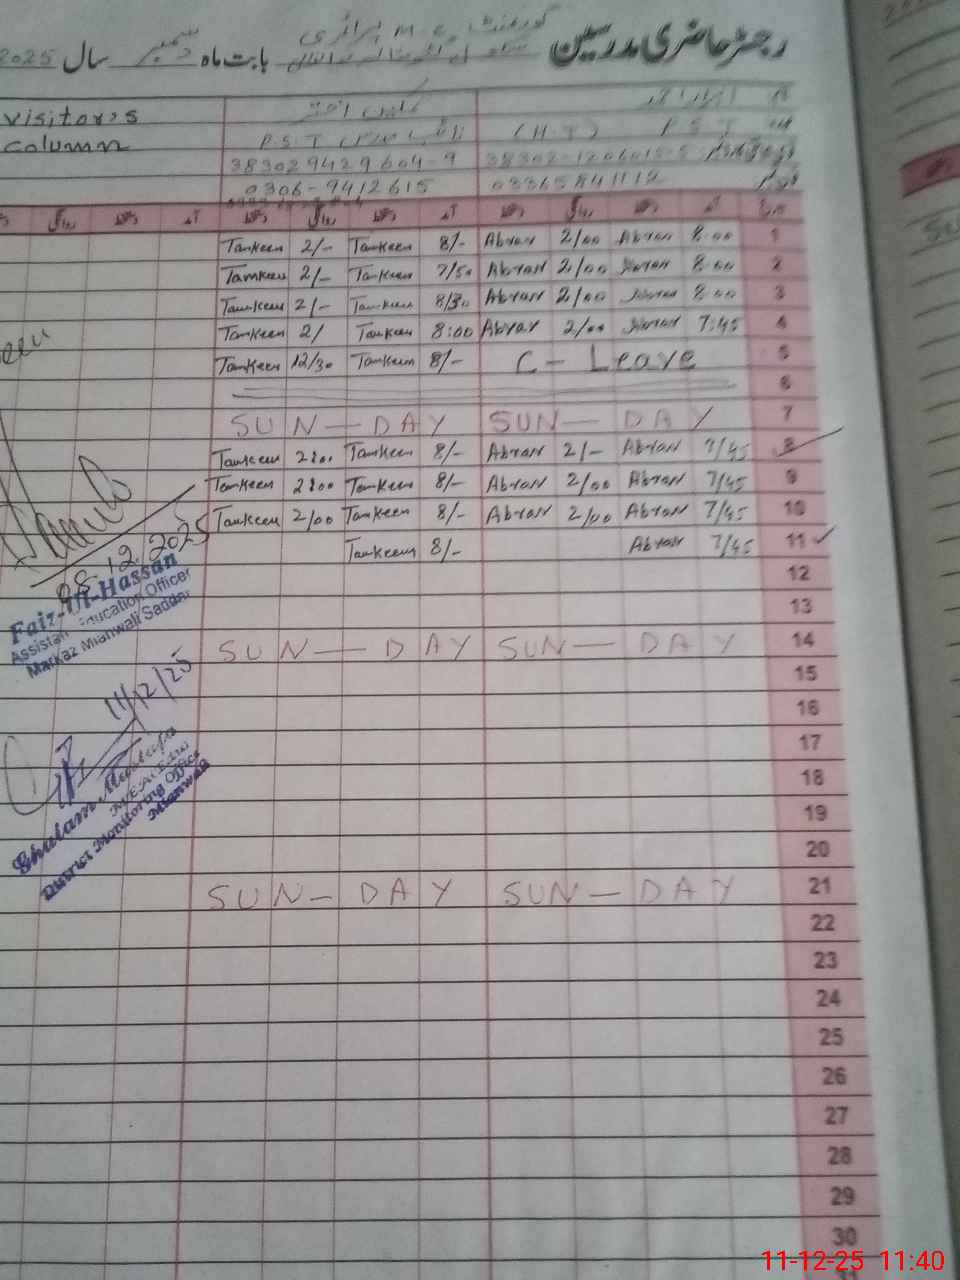 رجسٹر حاضری مدرسین گورنمنٹ M.C پرائمری سکول بابت ماہ دسمبر سال 2025
visitor's
column
P.S.T
(H.T) P.S.T
38302 9429604-9
38302-1206015-5
0306-9412615
03365841112
دستخط روانگی دستخط آمد دستخط روانگی دستخط آمد تاریخ
Tamkeen 2/- Tamkeen 8/- Abrar 2/00 Abrar 8:00 1
Tamkeen 2/- Tamkeen 7/50 Abrar 2/00 Abrar 8:00 2
Tamkeen 2/- Tamkeen 8/30 Abrar 2/00 Abrar 8:00 3
Tamkeen 2/ Tamkeen 8:00 Abrar 2/00 Abrar 7:45 4
Tamkeen 12/30 Tamkeen 8/- C - Leave 5
6
SUN — DAY SUN — DAY 7
Tamkeen 2:00 Tamkeen 8/- Abrar 2/- Abrar 7/45 8
Tamkeen 2:00 Tamkeen 8/- Abrar 2/00 Abrar 7/45 9
Tamkeen 2/00 Tamkeen 8/- Abrar 2/00 Abrar 7/45 10
Tamkeen 8/- Abrar 7/45 11
12
13
SUN — DAY SUN — DAY 14
15
16
17
18
19
20
SUN — DAY SUN — DAY 21
22
23
24
25
26
27
28
29
30
31
08.12.2025
Faiz-Ul-Hassan
Assistant Education Officer
Markaz Mianwali Saddar
11/12/25
Ghulam Mustafa
MEA
District Monitoring Office
Mianwali
11-12-25 11:40